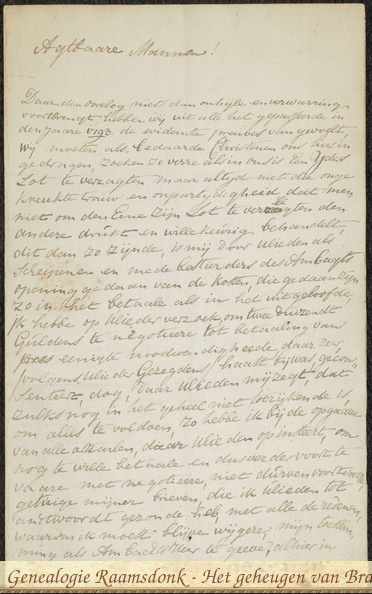 Agtbaare Mannen!
Daar den oorlog niets dan onheyle en verwarring
voortbrengt hebben wij uit alle het gepasseerde in
den jaare 1793. de evidente preuves van gevoelt,
wij moeten als bedaarde Christenen ons hier in
gedragen, zoeken zo verre als in ons is Een Ydes
Lot te verzagten maar altijd met die onge
kreukte trouw en onpartydigheid dat men
niet om den Eene Zijn Lot te verzagten den
andere drukt en willekeurig behandelt,
dit dan zo zijnde, is mij door Ulieden als
Schepenen en mede bestierders des Ambagts
opening gedaan van de kosten, die gedaan zijn
zo in het betaale als in het uitgeloofde,
Ik hebbe op Ulieder verzoek om twee duizend
Guldens te negotieere tot betaaling van
eenigte noodwendigheede, daar zes
volgens Ulieder Gezegdens haast bij was, gecon,,
senteer, dog daar Ulieden mij zegt, dat
zulks nog in het geheel niet toerijkende is,
om alles te voldoen, Zo hebbe ik bij de opgaave
van alle, die Ulieden op insteert, om
nog te wille betaale en dus verder voort te
vaare met negotieere, niet durven
getuige mijner brieven, die ik Ulieden tot
andtwoordt gezonde heb, met alle de redenen,
waarom ik moet blijve wijgere, mijn
ming als Ambachtsheer te geeve, alhier in
Genealogie Raamsdonk - Het geheugen van Bra